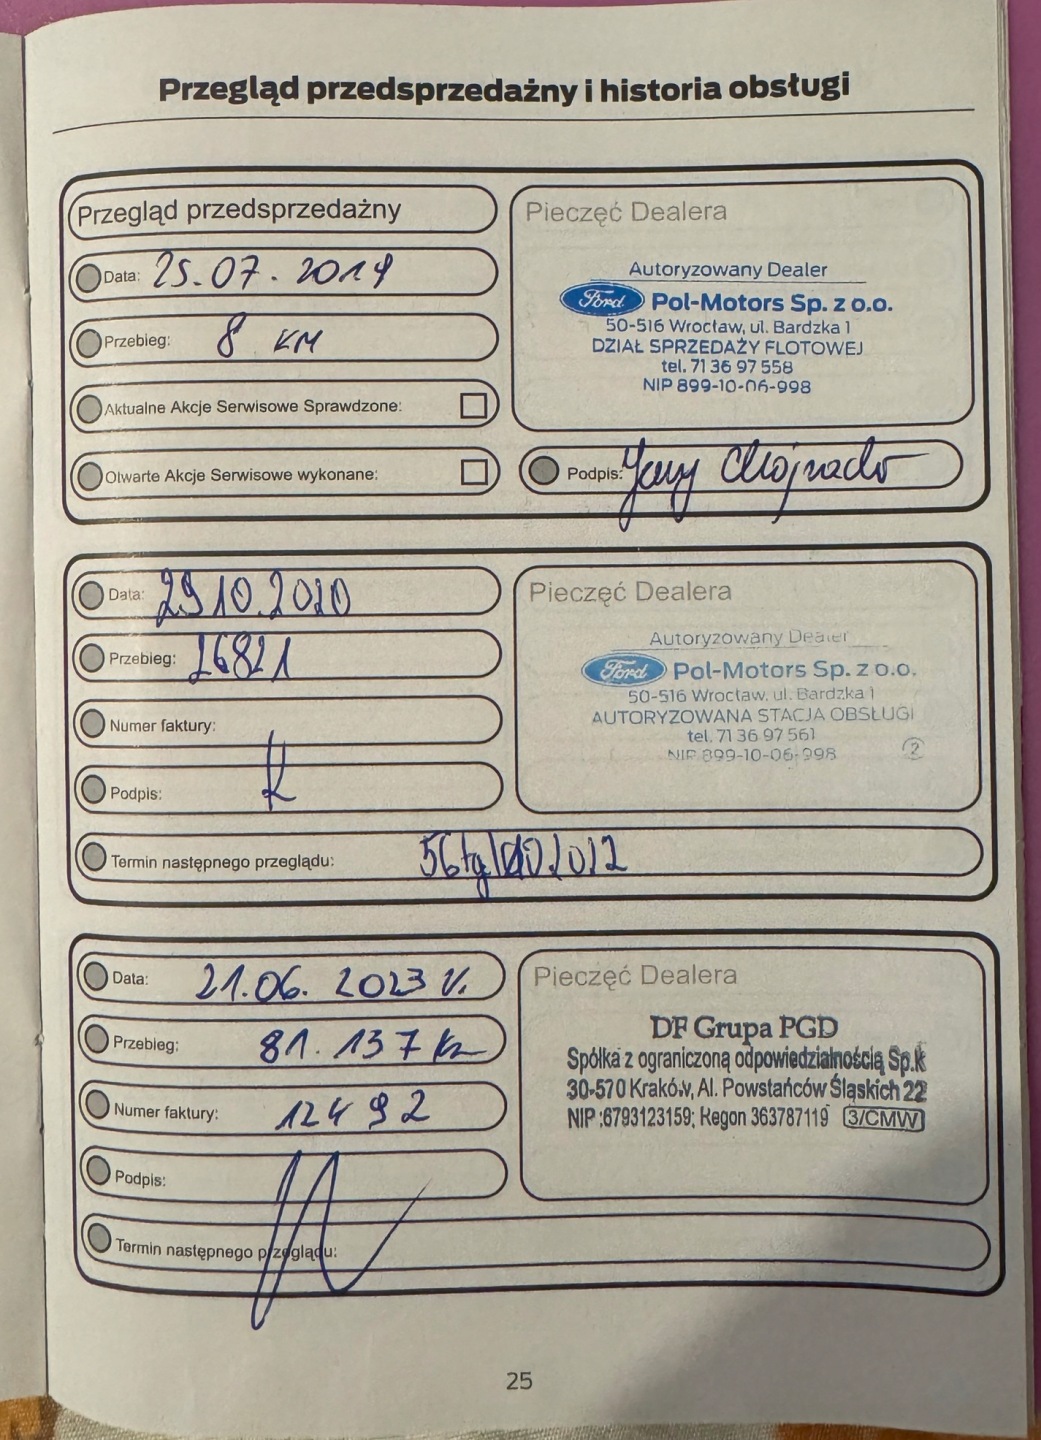 Przegląd przedsprzedażny i historia obsługi
Przegląd przedsprzedażny
Data: 25.07.2019
Przebieg: 8 KM
Aktualne Akcje Serwisowe Sprawdzone:
Otwarte Akcje Serwisowe wykonane:
Pieczęć Dealera
Autoryzowany Dealer
Ford Pol-Motors Sp. z o.o.
50-516 Wrocław, ul. Bardzka 1
DZIAŁ SPRZEDAŻY FLOTOWEJ
tel. 71 36 97 558
NIP 899-10-06-998
Podpis:
Data: 29.10.2020
Przebieg: 26821
Numer faktury:
Podpis:
Pieczęć Dealera
Autoryzowany Dealer
Ford Pol-Motors Sp. z o.o.
50-516 Wrocław, ul. Bardzka 1
AUTORYZOWANA STACJA OBSŁUGI
tel. 71 36 97 561
NIP 899-10-06-998
2
Termin następnego przeglądu:
Data: 21.06.2023 r.
Przebieg: 81.137 km
Numer faktury: 12492
Podpis:
Pieczęć Dealera
DF Grupa PGD
Spółka z ograniczoną odpowiedzialnością Sp.k
30-570 Kraków, Al. Powstańców Śląskich 22
NIP :6793123159; Regon 363787119 3/CMW
Termin następnego przeglądu:
25